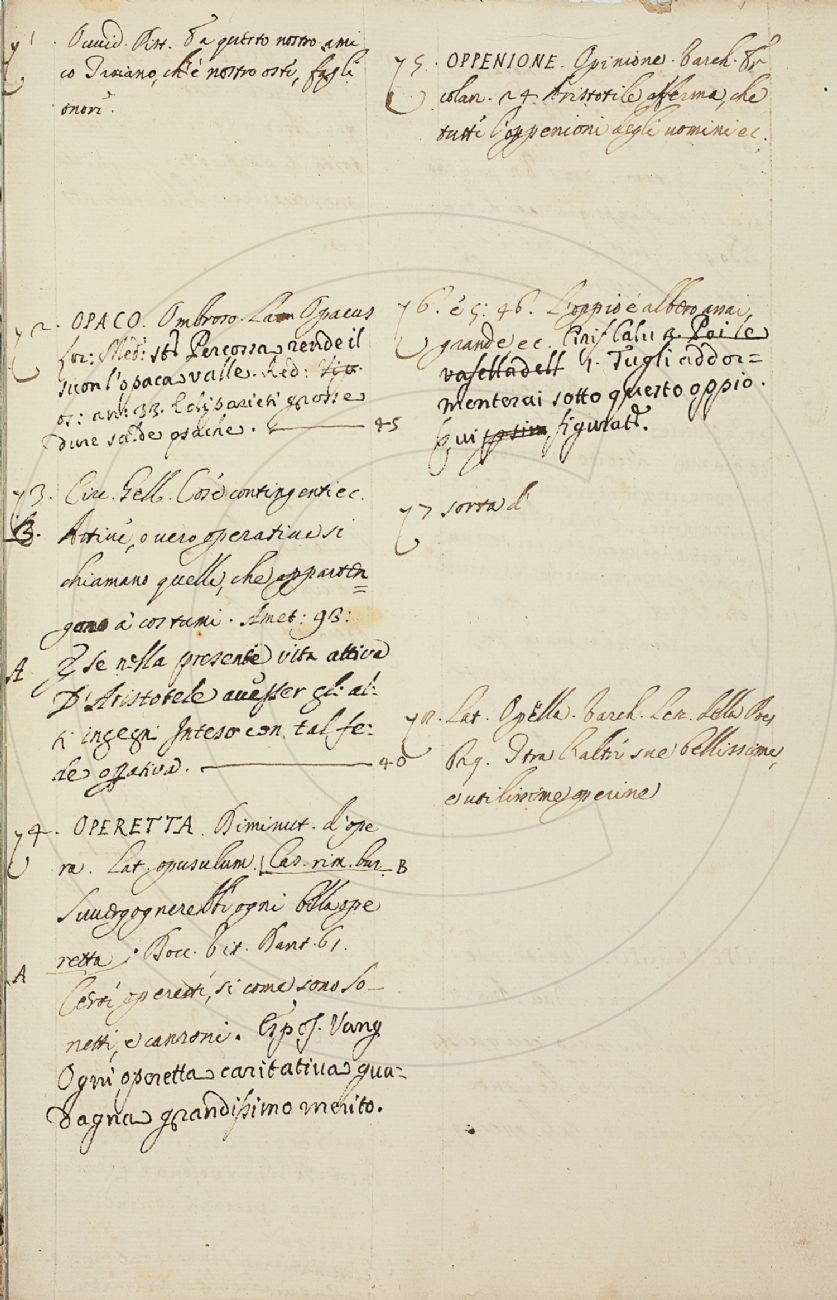 71. Ovvid. Pist. Fa questo nostro ami
co Damiano, ch'è nostro oste, fagli
onore.
72. OPACO. Ombroso. Lat. Opacus
Lor: Med: st: Percossa rende il
suon l'opaca valle. Red:
os: an: 33. Ed è pareti grosse
dure salde opache. 45
73. Circ. Gell. Cose contingenti ec.
B. Attive, o vero operative si
chiamano quelle, che apparten
gono a' costumi. Amet: 93:
A E se nella presente vita attiva
D'Aristotele avesser gl'al-
ti ingegni Inteso con tal fe-
de operativa. 40
74. OPERETTA. Diminut. d'ope
ra. Lat. opusculum. Cas. rim. bur. B
Svergognerebbe ogni bella ope
retta. Bocc. Vit. Dant. 61.
A Certe operette, si come sono so-
netti, e canzoni. Espos. Vang
Ogni operetta caritativa gua-
dagna grandissimo merito.
75. OPPENIONE. Opinione. Varch. Er
colan. 24. Aristotile afferma, che
tutte l'oppenioni degli uomini ec.
76. è 5: 46. L'oppio è albero assai
grande ec. Cirif. Calv. Poi le
vasella dell Tu gli addor=
menterai sotto questo oppio.
Qui figurat.
77 sorta d
78. Lat. Opella. Varch. Lez. della Poes
Pag. Tra l'altre sue bellissime,
e utilissime operine